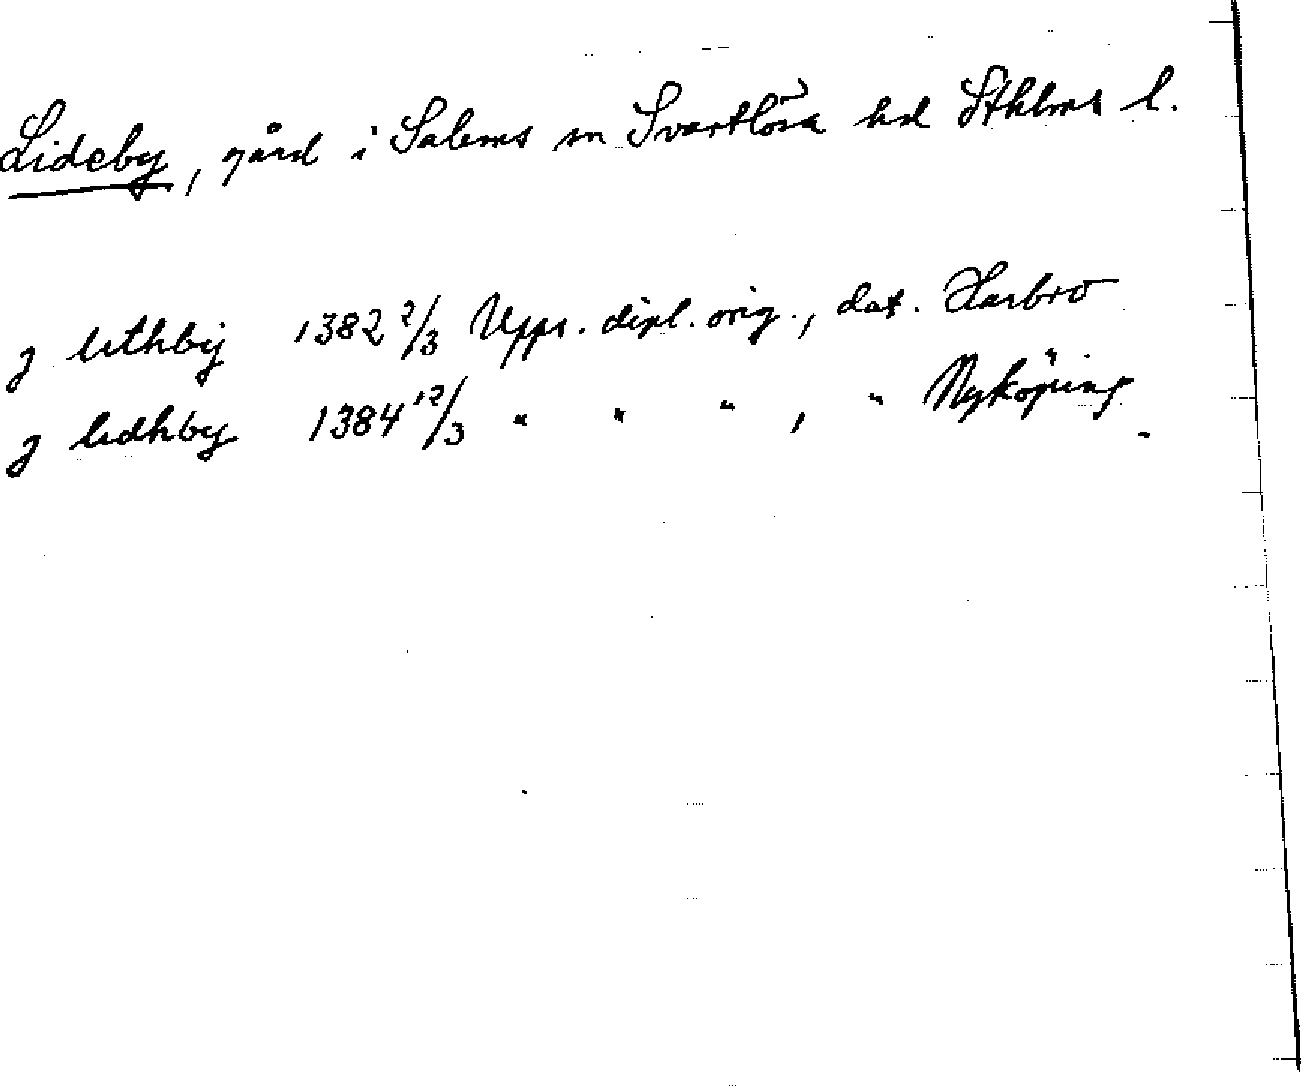 Lideby, gård i Salems sn Svartlösa hd Sthlms l.
j lithby 1382 2/3 Upps. dipl. orig., dat. Harbro
j lidhby 1384 12/3 " " " , " Nyköping.